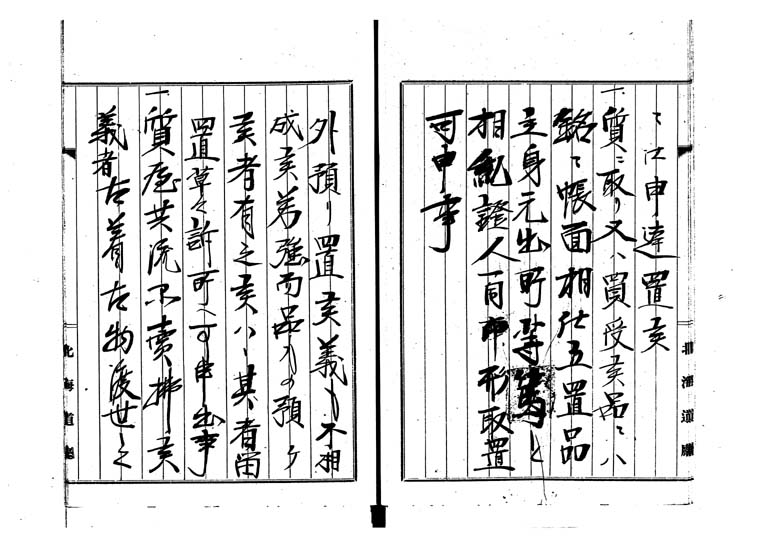 ミ江申達置候
一質ニ取り又ハ買受候品ミハ
銘ミ帳面相仕立置品
主身元出所等篤と
相糺證人一同印形取置
可申事
外預り置候義ハ不相
成候若強而品もの預ケ
候者有之候ハヽ其者留
置早々訴可可申出事
一質屋共流不賣拂候
義者古着古物渡世之
北海道廳
北海道廳